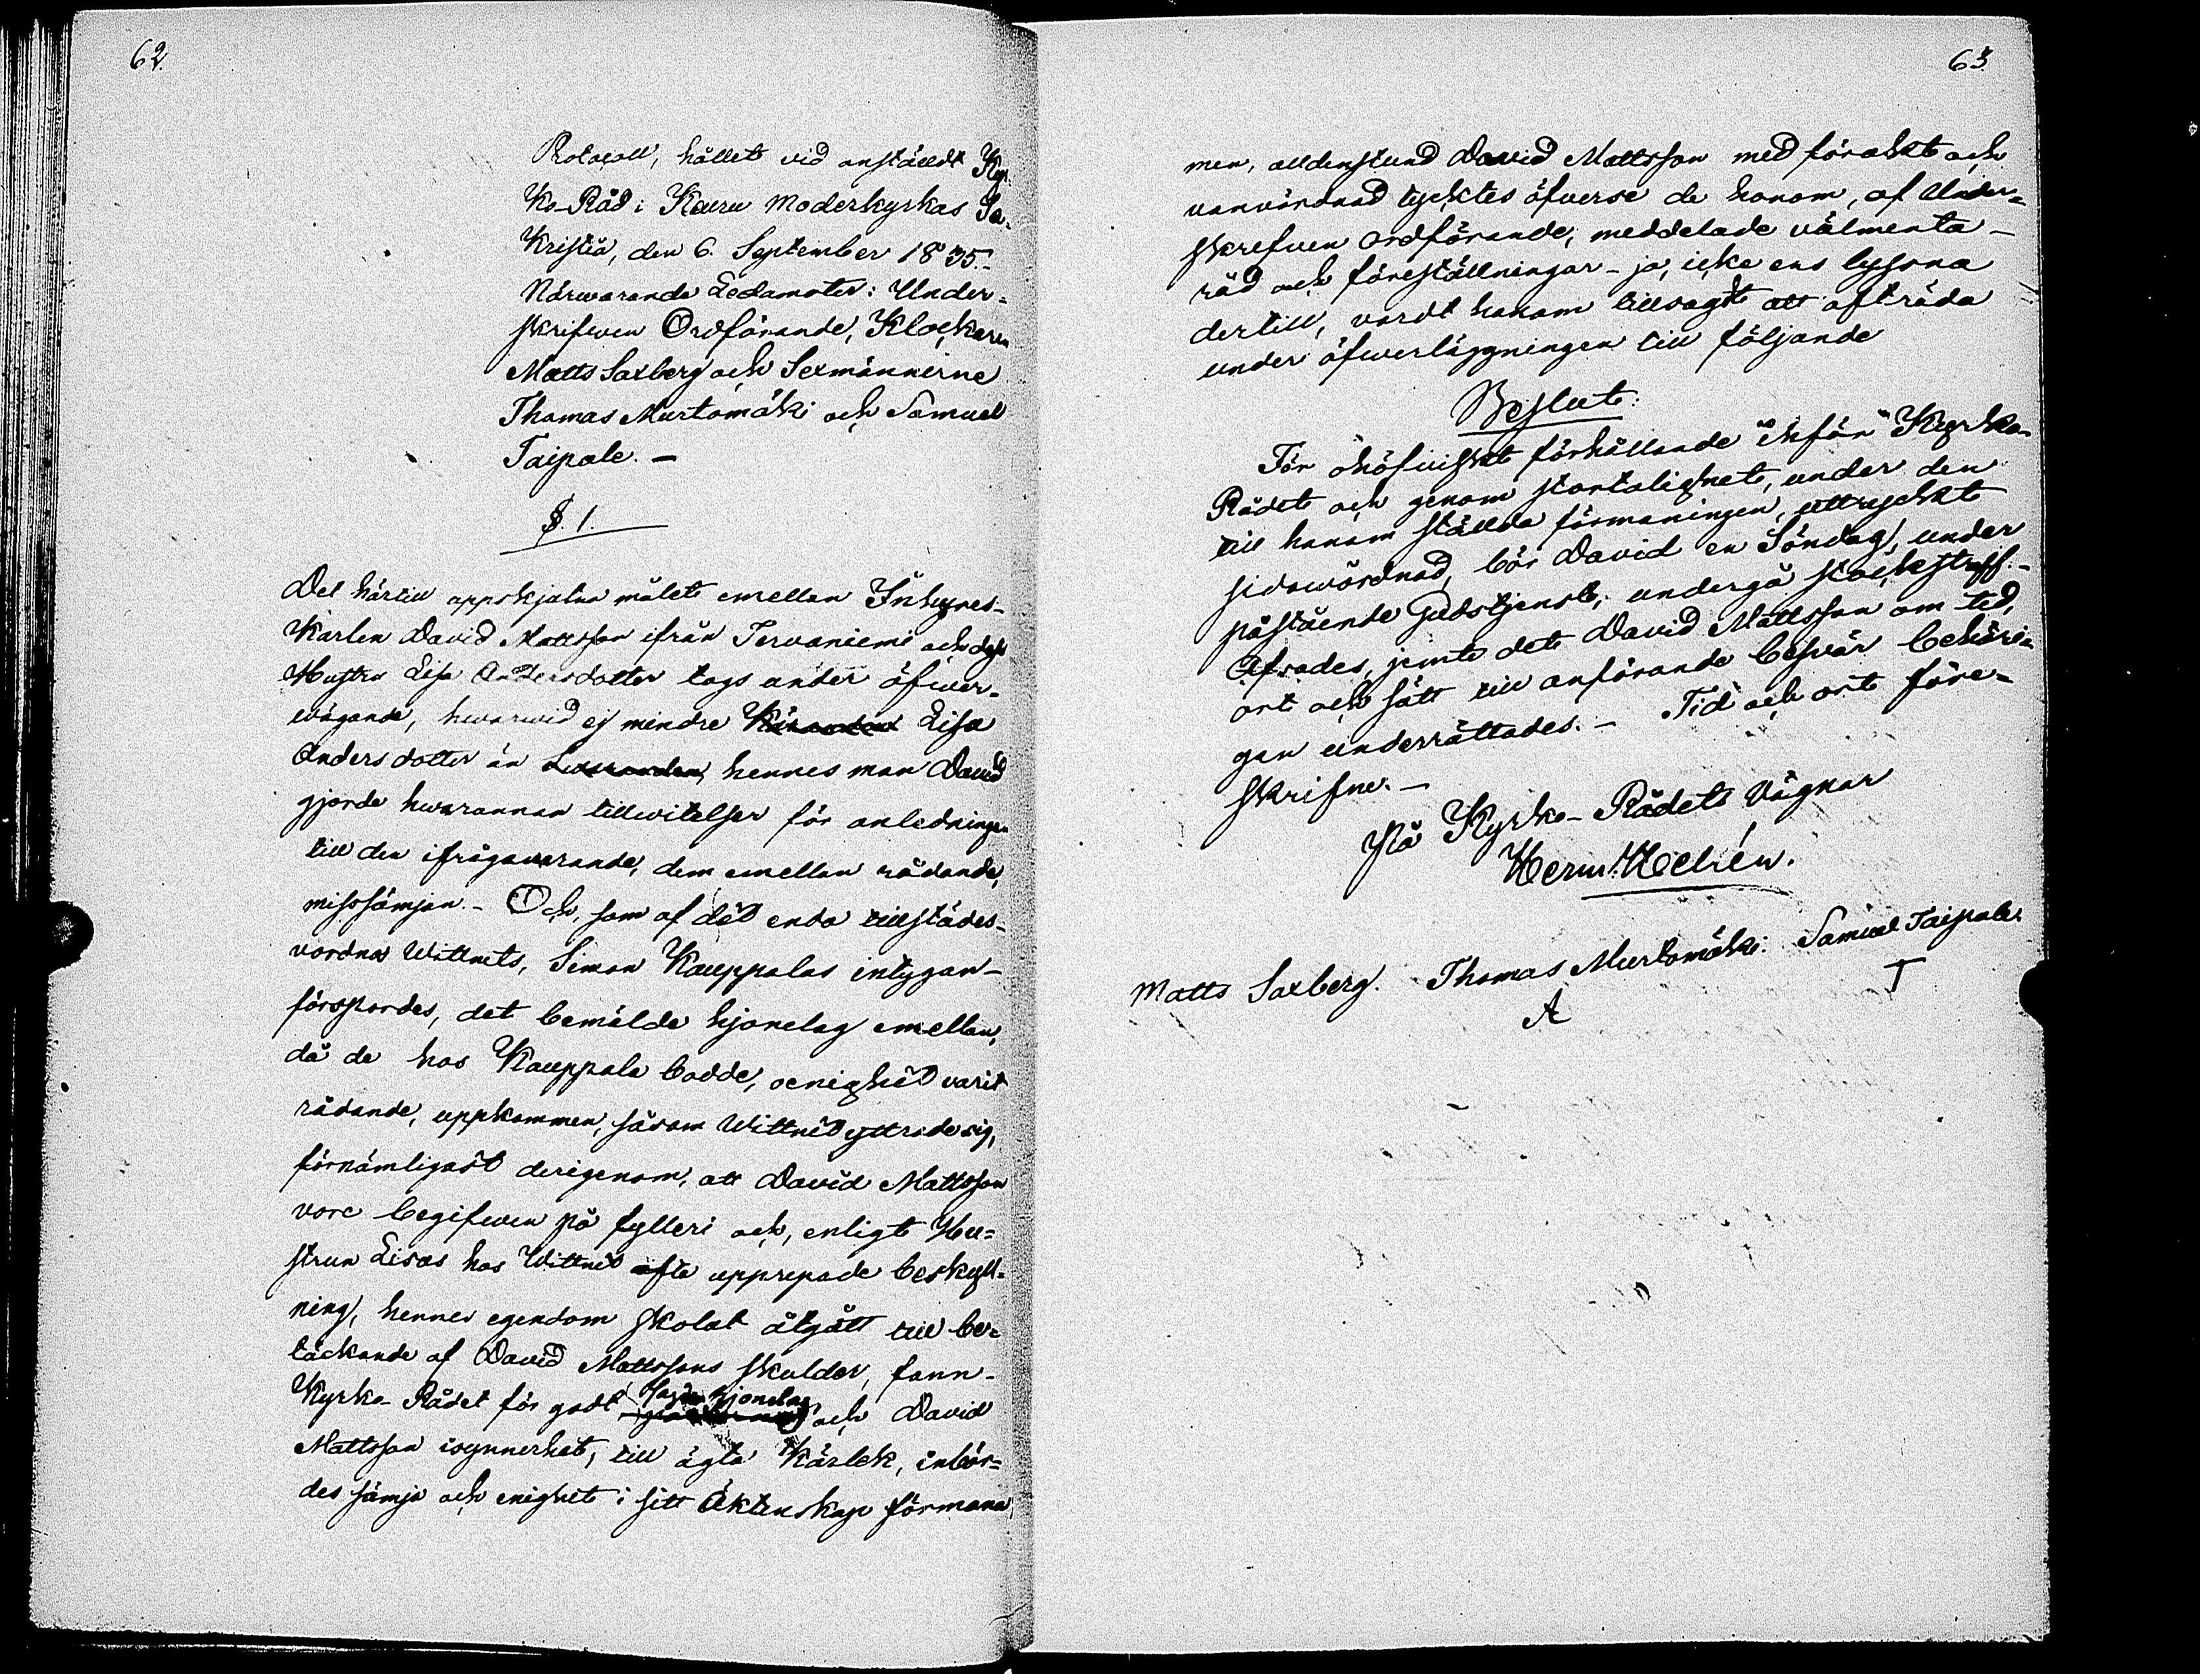 62.
Protocoll, hållet vid anstäldt Kyr-
ko-Råd i Keuru Moderkyrkas Sa-
kristia, den 6. September 1835.-
Närwarande Ledamoter: Under-
skrifwen Ordförande, Klockaren
Matts Saxberg och Sexmännerne
Thomas Murtomäki och Samuel
Taipale. -
§. 1.
Det härtill uppskjutna målet emellan Inhyses-
Karlen David Mattsson ifrån Tervaniemi och dess
Hustru Lisa Andersdotter togs under öfwer-
wägande, hwarwid ej mindre Käranden Lisa
Andersdotter än Swaranden, hennes man David
gjorde hwarannan tillwitelser för anledningen
till den ifrågawarande, dem emellan rådande,
misssämjan. - Och, som af det enda tillstädes-
vordna Wittnets, Simon Kauppalas intygan-
försports, det bemälde hjonelag emellan,
då de hos Kauppala bodde, oenighet varit
rådande, uppkommen, såsom Wittnet yttrade sig,
förnämligast derigenom, att David Mattsson
vore begifwen på fylleri och, enligt Hu-
strun Lisas hos Wittnet ofta upprepade beskyll-
ning, hennes egendom skolat åtgått till be-
täckande af David Mattssons skulder, fann-
Kyrko-Rådet för godt, sagde hjonelag och David
Mattsson isynnerhet, till ägta kärlek, inbör-
des sämja och enighet i sitt Äktenskap förmana,
63.
men, alldenstund David Mattsson med förakt och
vanvördnad tycktes öfverse de honom, af Under-
skrefven ordförande, meddelade välmenta-
råd och föreställningar - ja, icke ens lyssna
dertill, vardt honom tillsagt att afträda
under öfwerläggningen till följande
Beslut:
För ohöfwiskt förhållande inför Kyrko-
Rådet och genom stortalighet, under den
till honom ställda förmaningen, uttryckt
sidowördnad, bör David en Söndag, under
påstående Gudstjenst, undergå stockstraff. -
Afsades, jemte det David Mattsson om tid,
ort och sätt till anförande besvär behöri-
gen underrättades. - Tid och ort före-
skrifne. -
På Kyrko-Rådets Vägnar
Herm: Hellén.
Matts Saxberg. Thomas Murtomäki. Samuel Taipale.
A T